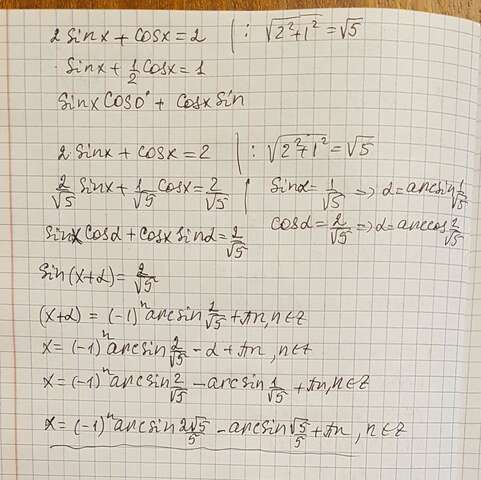 2 sinx + cosx = 2 | : √(2²+1²) = √5
sinx + 1/2 cosx = 1
sinx cos0° + cosx sin
2 sinx + cosx = 2 | : √(2²+1²) = √5
2/√5 sinx + 1/√5 cosx = 2/√5 | sinα = 1/√5 => α = arcsin 1/√5
cosα = 2/√5 => α = arccos 2/√5
sinx cosα + cosx sinα = 2/√5
sin(x+α) = 2/√5
(x+α) = (-1)ⁿ arcsin 2/√5 + πn, n∈Z
x = (-1)ⁿ arcsin 2/√5 - α + πn, n∈Z
x = (-1)ⁿ arcsin 2/√5 - arcsin 1/√5 + πn, n∈Z
x = (-1)ⁿ arcsin 2√5/5 - arcsin √5/5 + πn, n∈Z